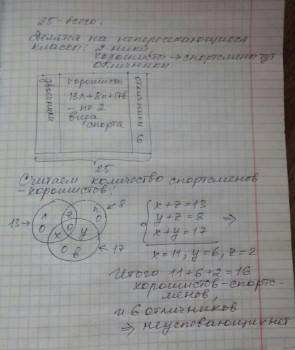 25 - всего.
Делятся на непересекающиеся
классы: 2-ники,
хорошисты → спортсмены тут
отличники
двоечники
хорошисты
13л+8п+17в
- по 2
вида
спорта
отличники 6
25
Считаем количество спортсменов
-хорошистов:
13→
л
п
←8
z
0
x
y
0
0
0
в
←17
x+z=13
y+z=8
x+y=17
⇒
x=11, y=6, z=2
Итого 11+6+2=16
хорошистов-спортс-
менов,
и 6 отличников
⇒ неуспевающих нет